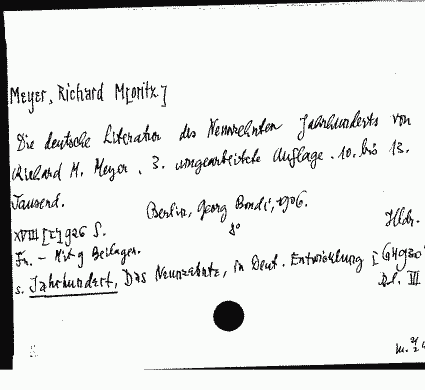 Meyer, Richard M[oritz]
Die deutsche Literatur des Neunzehnten Jahrhunderts von
Richard M. Meyer. 3. umgearbeitete Auflage. 10. bis 13.
Tausend.
Berlin, Georg Bondi, 1906.
XVIII [I] 926 S. 8° Hldr.
Fr. – Mit 9 Beilagen.
s. Jahrhundert, Das Neunzehnte, in Deut. Entwicklung
Bd. III